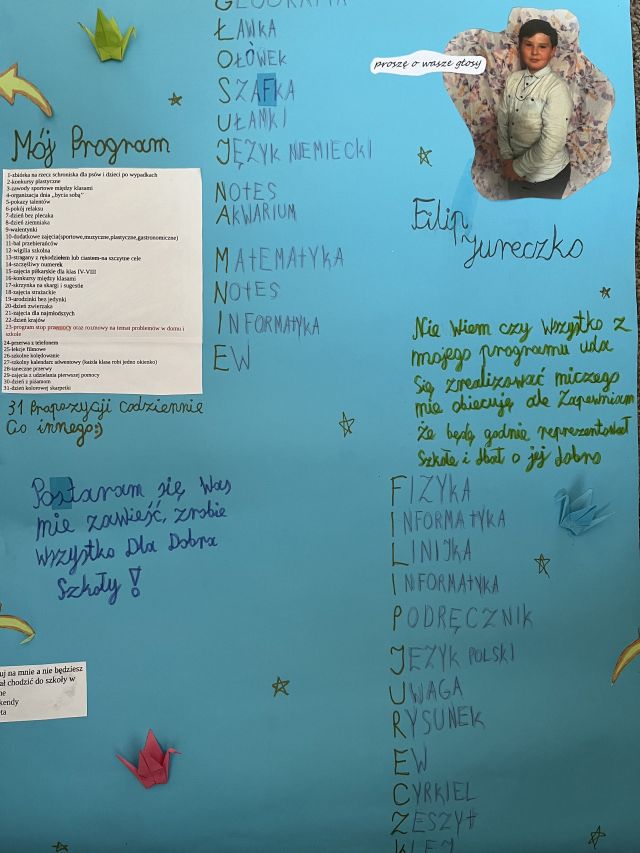 GEOGRAFIA
ŁAWKA
OŁÓWEK
SZAFKA
UŁAMKI
JĘZYK NIEMIECKI
NOTES
AKWARIUM
MATEMATYKA
NOTES
INFORMATYKA
EW
proszę o wasze głosy
Filip
Jureczko
Mój Program
1-zbiórka na rzecz schroniska dla psów i dzieci po wypadkach
2-konkursy plastyczne
3-zawody sportowe między klasami
4-organizacja dnia ,,bycia sobą"
5-pokazy talentów
6-pokój relaksu
7-dzień bez plecaka
8-dzień ziemniaka
9-walentynki
10-dodatkowe zajęcia(sportowe,muzyczne,plastyczne,gastronomiczne)
11-bal przebierańców
12-wigilia szkolna
13-stragany z rękodziełem lub ciastem-na szczytne cele
14-szczęśliwy numerek
15-zajęcia piłkarskie dla klas IV-VIII
16-konkursy między klasami
17-skrzynka na skargi i sugestie
18-zajęcia strażackie
19-urodzinki bez jedynki
20-dzień zwierzaka
21-zajęcia dla najmłodszych
22-dzień krajów
23-program stop przemocy oraz rozmowy na temat problemów w domu i
szkole
24-przerwa z telefonem
25-lekcje filmowe
26-szkolne kolędowanie
27-szkolny kalendarz adwentowy (każda klasa robi jedno okienko)
28-taneczne przerwy
29-zajęcia z udzielania pierwszej pomocy
30-dzień z piżamom
31-dzień kolorowej skarpetki
31 Propozycji codziennie
Co innego:)
Nie wiem czy wszystko z
mojego programu uda
się zrealizować niczego
nie obiecuję ale Zapewniam
że będę godnie reprezentował
Szkołe i dbał o jej dobro
Postaram się Was
nie zawieść, zrobie
wszystko Dla Dobra
Szkoły!
FIZYKA
INFORMATYKA
LINIJKA
INFORMATYKA
PODRĘCZNIK
JĘZYK POLSKI
UWAGA
RYSUNEK
EW
CYRKIEL
ZESZYT
KLEJ
uj na mnie a nie będziesz
ał chodzić do szkoły w
ne
kendy
ta